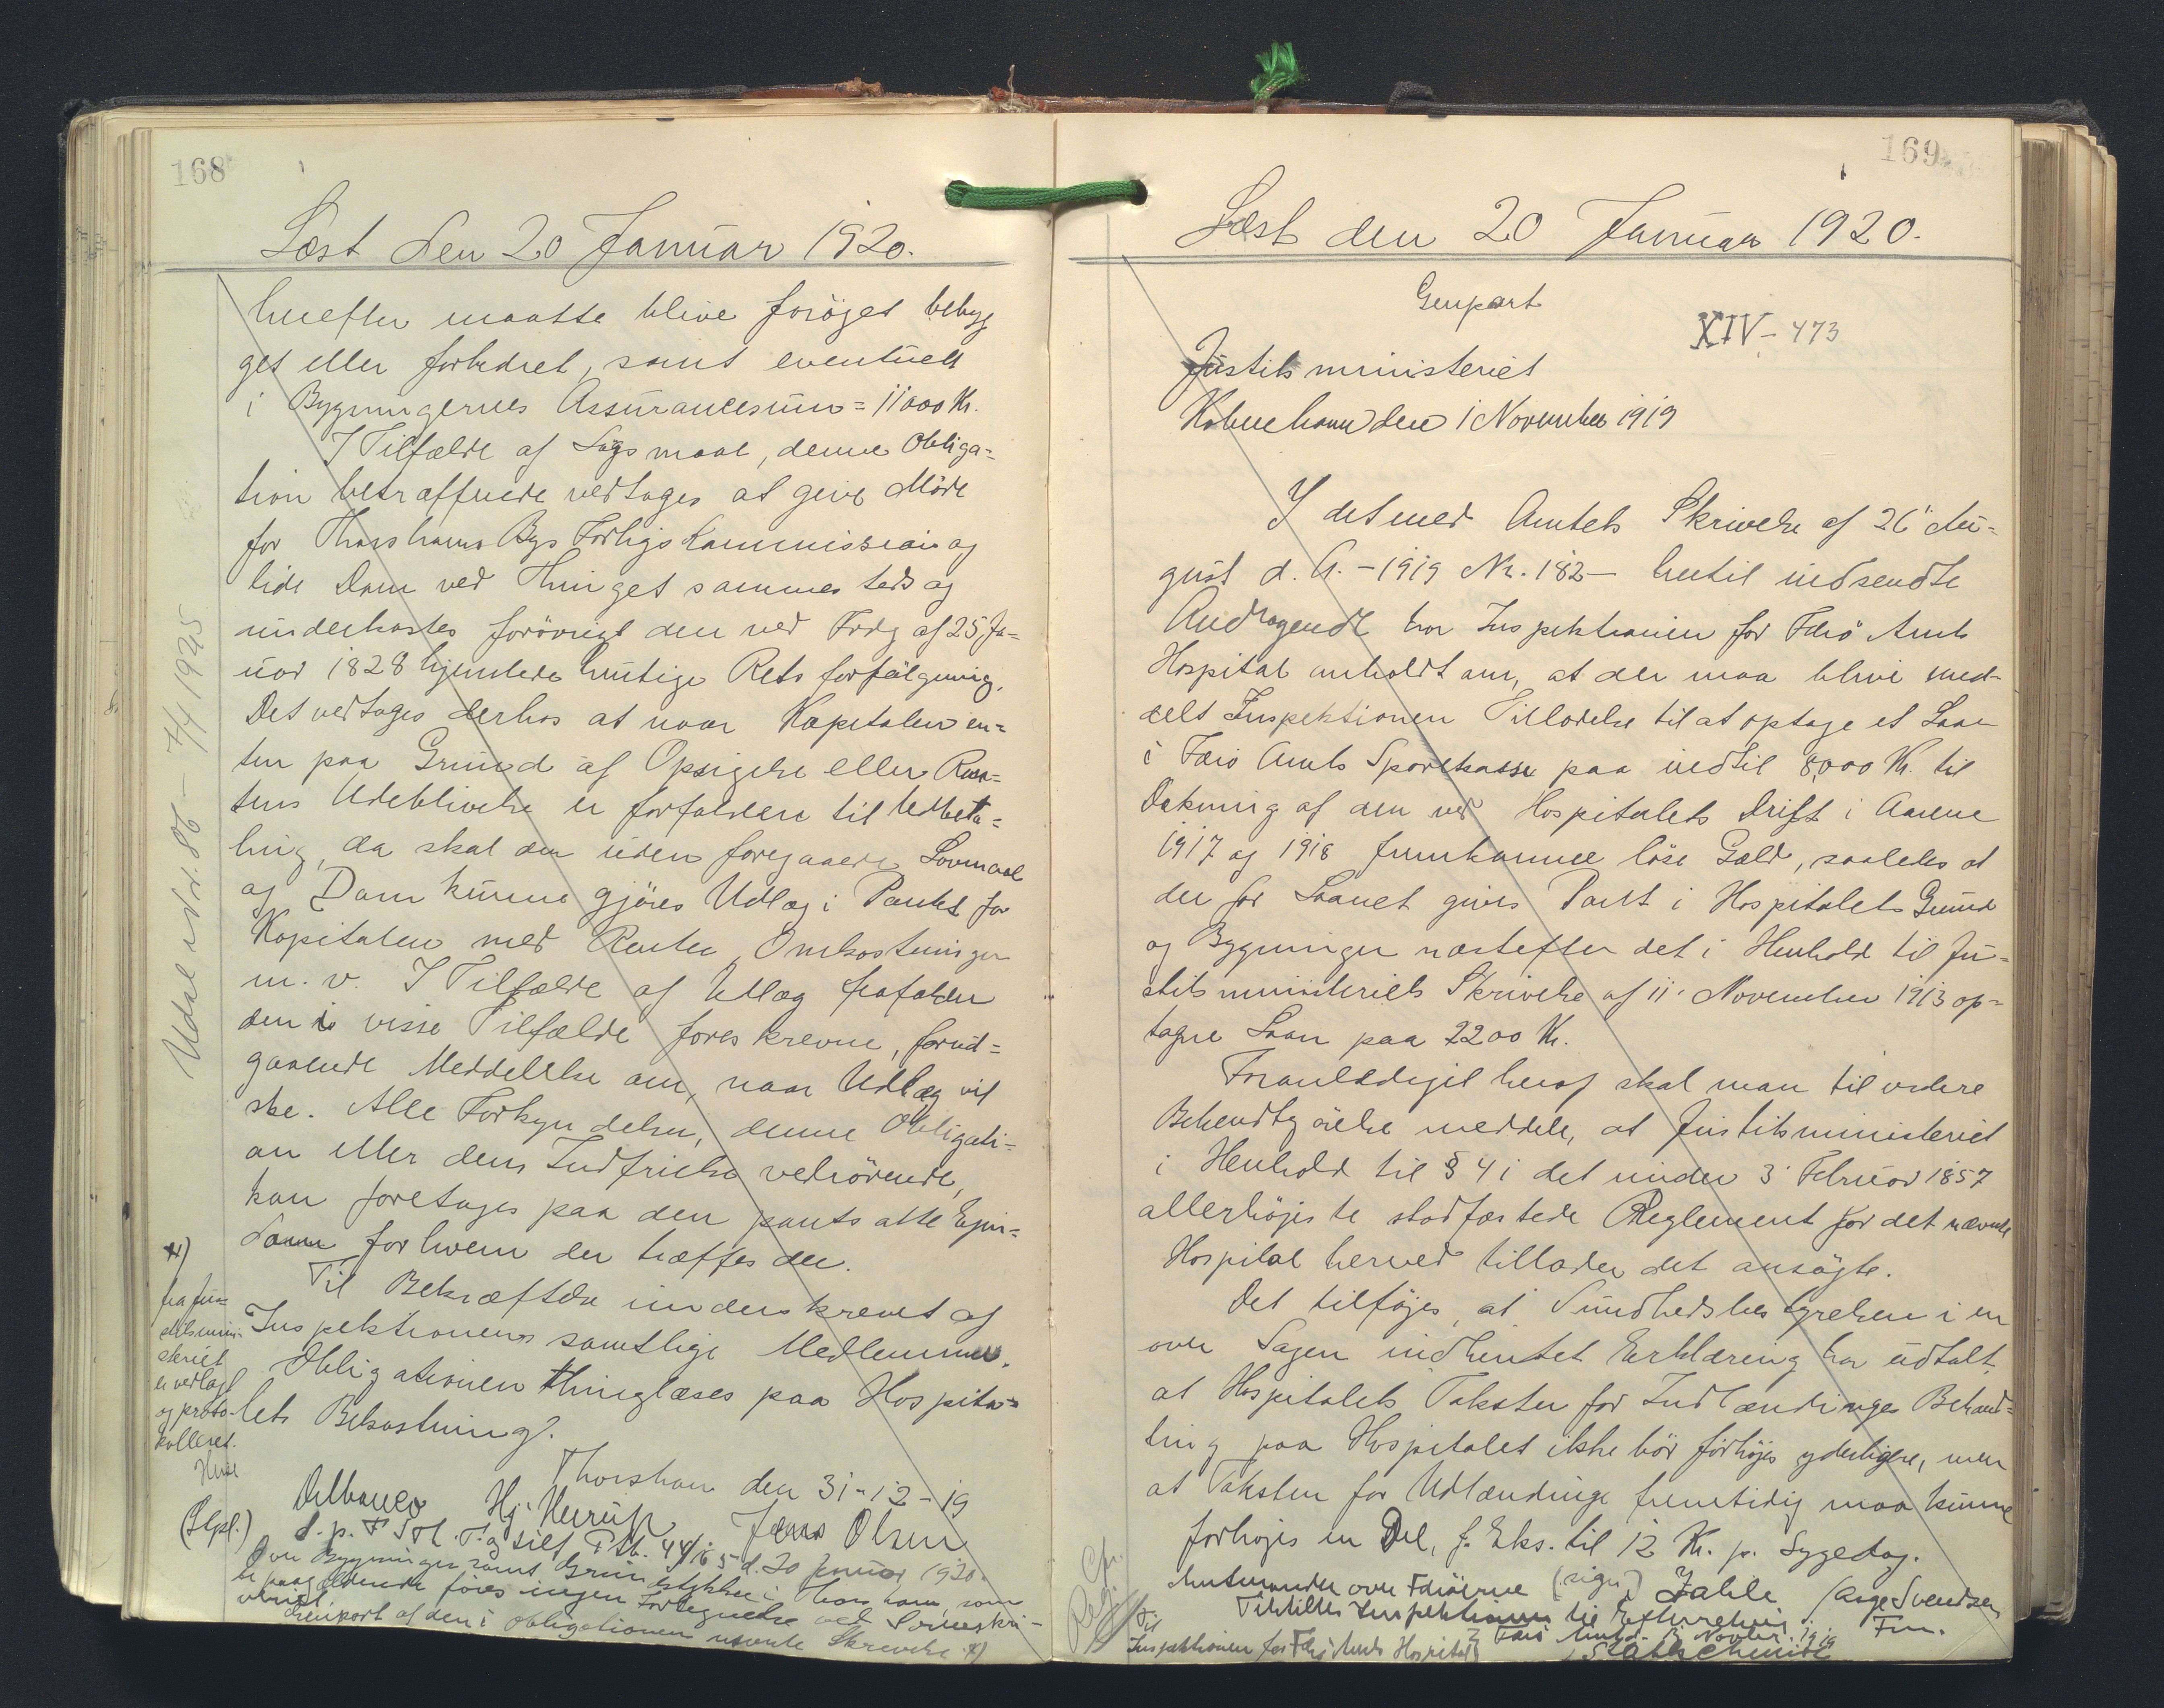 168
Læst den 20 Januar 1920.
herefter maatte blive forøget bebyg
get eller forbedret, samt eventuelt
i Bygningernes Assurancesum = 11000 Kr.
I Tilfælde af Søgsmaal, denne Obliga=
tion betræffende vedtages at give Møde
for Thorshavns Bys Forligskommission og
lide Dom ved Thinget sammesteds og
underkastes forøvrigt den ved Frdg af 25 Ja=
nuar 1828 hjemlede hurtige Retsforfølgning.
Det vedtages derhos at naar Kapitalen en=
ten paa Grund af Opsigelse eller Ren=
tens Udeblivelse er forfalden til Udbeta=
ling, da skal der uden foregaaende Lovmaal
og Dom kunne gjöres Udlæg i Pantet for
Kapitalen med Renter, Omkostninger
m. v. I Tilfælde af Udlæg frafalder
den i visse Tilfælde foreskrevne, forud=
gaaende Meddelelse om, naar Udlæg vil
ske. Alle Forkyndelser, denne Obligati=
on eller dens Indfrielse vedrörende,
kan foretages paa den pantsatte Ejen=
dom for hvem der træffes der.
Til Bekræftelse underskrevet af
Inspektionens samtlige Medlemmer.
Obligationen thinglæses paa Hospita=
lets Bekostning.
Thorshavn den 31-12-19
Hj. Jens Olsen
S. p. F. d. 20 Januar 1920.
Over Bygninger samt Grundstykke i Thorshavn, som
er paagældende föres ingen Fortegnelse ved Sorenskri-
veriet.
Genpart af den i Obligationen nævnte Skrivelse x)
x)
fra Jus=
titsmini-
steriet
er vedlagt
og proto-
kolleret.
Udsl. Nr. 86 - 7/4 1925
169
Læst den 20 Januar 1920.
Genpart
XIV - 473
Justitsministeriet
København den 1 November 1919
I det med Amtets Skrivelse af 26' Au=
gust d. A. - 1919 Nr. 182 - hertil indsendte
Andragende har Inspektionen for Færö Amts
Hospital anholdt om, at der maa blive med-
delt Inspektionen Tilladelse til at optage et Laan
i Færö Amts Sparekasse paa indtil 8,000 Kr. til
Dækning af den ved Hospitalets Drift i Aarene
1917 og 1918 fremkomne løse Gæld, saaledes at
der for Laanet gives Pant i Hospitalets Grund
og Bygninger næstefter det i Henhold til Ju=
stitsministeriets Skrivelse af 11' November 1913 op=
tagne Laan paa 2200 Kr.
Foranlediget heraf skal man til videre
Bekendtgörelse meddele, at Justitsministeriet
i Henhold til § 4 i det under 3' Februar 1857
allerhøjeste stadfæstede Reglement for det nævnte
Hospital herved tillader det ansøgte.
Det tilføjes, at Sundhedsbestyrelsen i en
over Sagen indhentet Erklæring har udtalt
at Hospitalets Takster for Indlændinges Behand=
ling paa Hospitalet ikke bör forhøjes yderligere, men
at Taksten for Udlændinge fremtidig maa kunne
forhøjes en Del, f. Eks. til 12 Kr. p. Sygedag.
Amtmanden over Færöerne (sign) Zahle / Aage Svendsen
Fm.
Tilstilles Inspektionen til Efterretning.
Færö Amt d. Novbr. 1919
Til
Inspektionen for Færö Amts Hospital